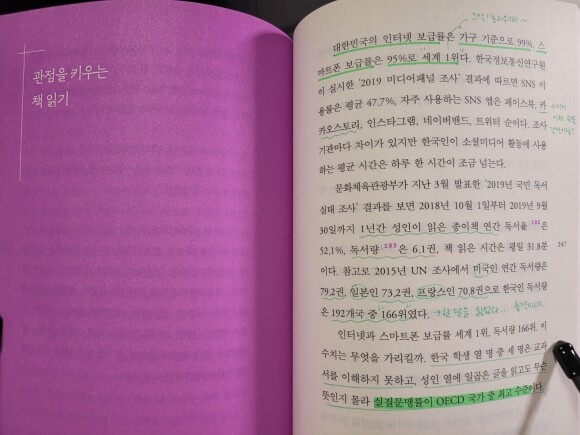 관점을 키우는
책 읽기
대한민국의 인터넷 보급률은 가구 기준으로 99%, 스
마트폰 보급률은 95%로 세계 1위다. 한국정보통신연구원
이 실시한 '2019 미디어패널 조사' 결과에 따르면 SNS 이
용률은 평균 47.7%, 자주 사용하는 SNS 앱은 페이스북, 카
카오스토리, 인스타그램, 네이버밴드, 트위터 순이다. 조사
기관마다 차이가 있지만 한국인이 소셜미디어 활동에 사용
하는 평균 시간은 하루 한 시간이 조금 넘는다.
문화체육관광부가 지난 3월 발표한 '2019년 국민 독서
실태 조사' 결과를 보면 2018년 10월 1일부터 2019년 9월
30일까지 1년간 성인이 읽은 종이책 연간 독서율192은
52.1%, 독서량193은 6.1권, 책 읽은 시간은 평일 31.8분
이다. 참고로 2015년 UN 조사에서 미국인 연간 독서량은
79.2권, 일본인 73.2권, 프랑스인 70.8권으로 한국인 독서량
은 192개국 중 166위였다.
인터넷과 스마트폰 보급률 세계 1위, 독서량 166위. 이
수치는 무엇을 가리킬까. 한국 학생 열 명 중 세 명은 교과
서를 이해하지 못하고, 성인 열에 일곱은 글을 읽고도 무슨
뜻인지 몰라 실질문맹률이 OECD 국가 중 최고 수준이다.
247